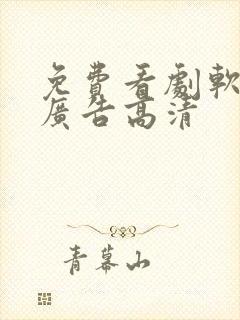 免費看劇軟
廣告高清
青幕山